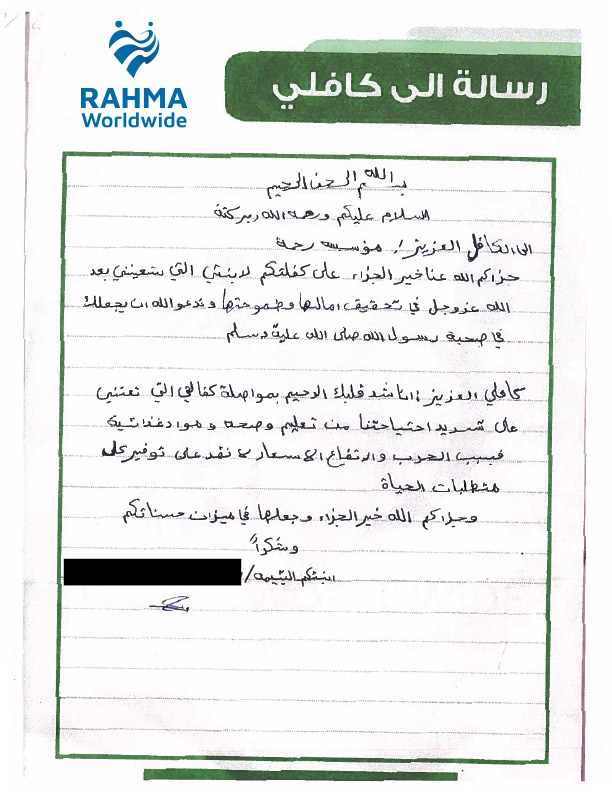 RAHMA
Worldwide
رسالة الى كافلي
بسم الله الرحمن الرحيم
السلام عليكم ورحمة الله وبركتة
الى الكافل العزيز / مؤسسه رحمة
جزاكم الله عنا خير الجزاء على كفلتكم لابنتي التي تسعينني بعد
الله عزوجل في تحقيق امالها وطموحتها وندعو الله ان يجعلك
في صحبة رسول الله صلى الله علية وسلم
كافلي العزيز : اناشد قلبك الرحيم بمواصلة كفالتي التي تعتني
على تسديد احتياجتنا من تعليم وصحه و مواد غذائية
فبسبب الحرب والارتفاع الاسعار لا نقد على توفير كل
متطلبات الحياة
وجزاكم الله خير الجزاء وجعلها في ميزان حسناتكم
وشكراً
ابنتكم اليتيمه /